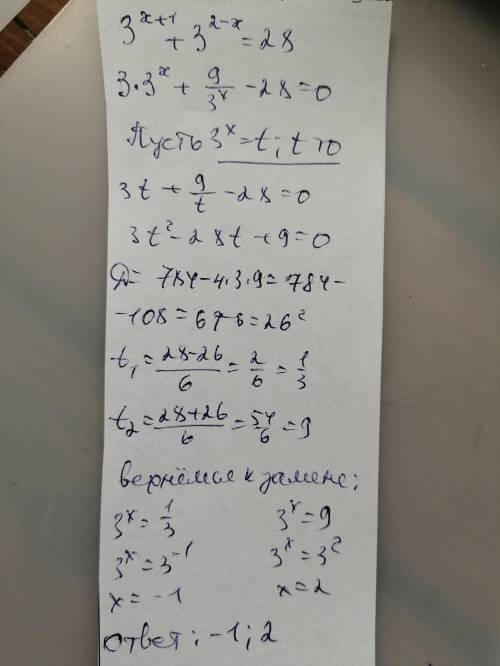 3^(x+1) + 3^(2-x) = 28
3·3^x + 9/3^x - 28 = 0
Пусть 3^x = t; t > 0
3t + 9/t - 28 = 0
3t² - 28t + 9 = 0
Д = 784 - 4·3·9 = 784 -
-108 = 676 = 26²
t₁ = (28-26)/6 = 2/6 = 1/3
t₂ = (28+26)/6 = 54/6 = 9
вернёмся к замене:
3^x = 1/3 3^x = 9
3^x = 3^-1 3^x = 3²
x = -1 x = 2
ответ: -1; 2